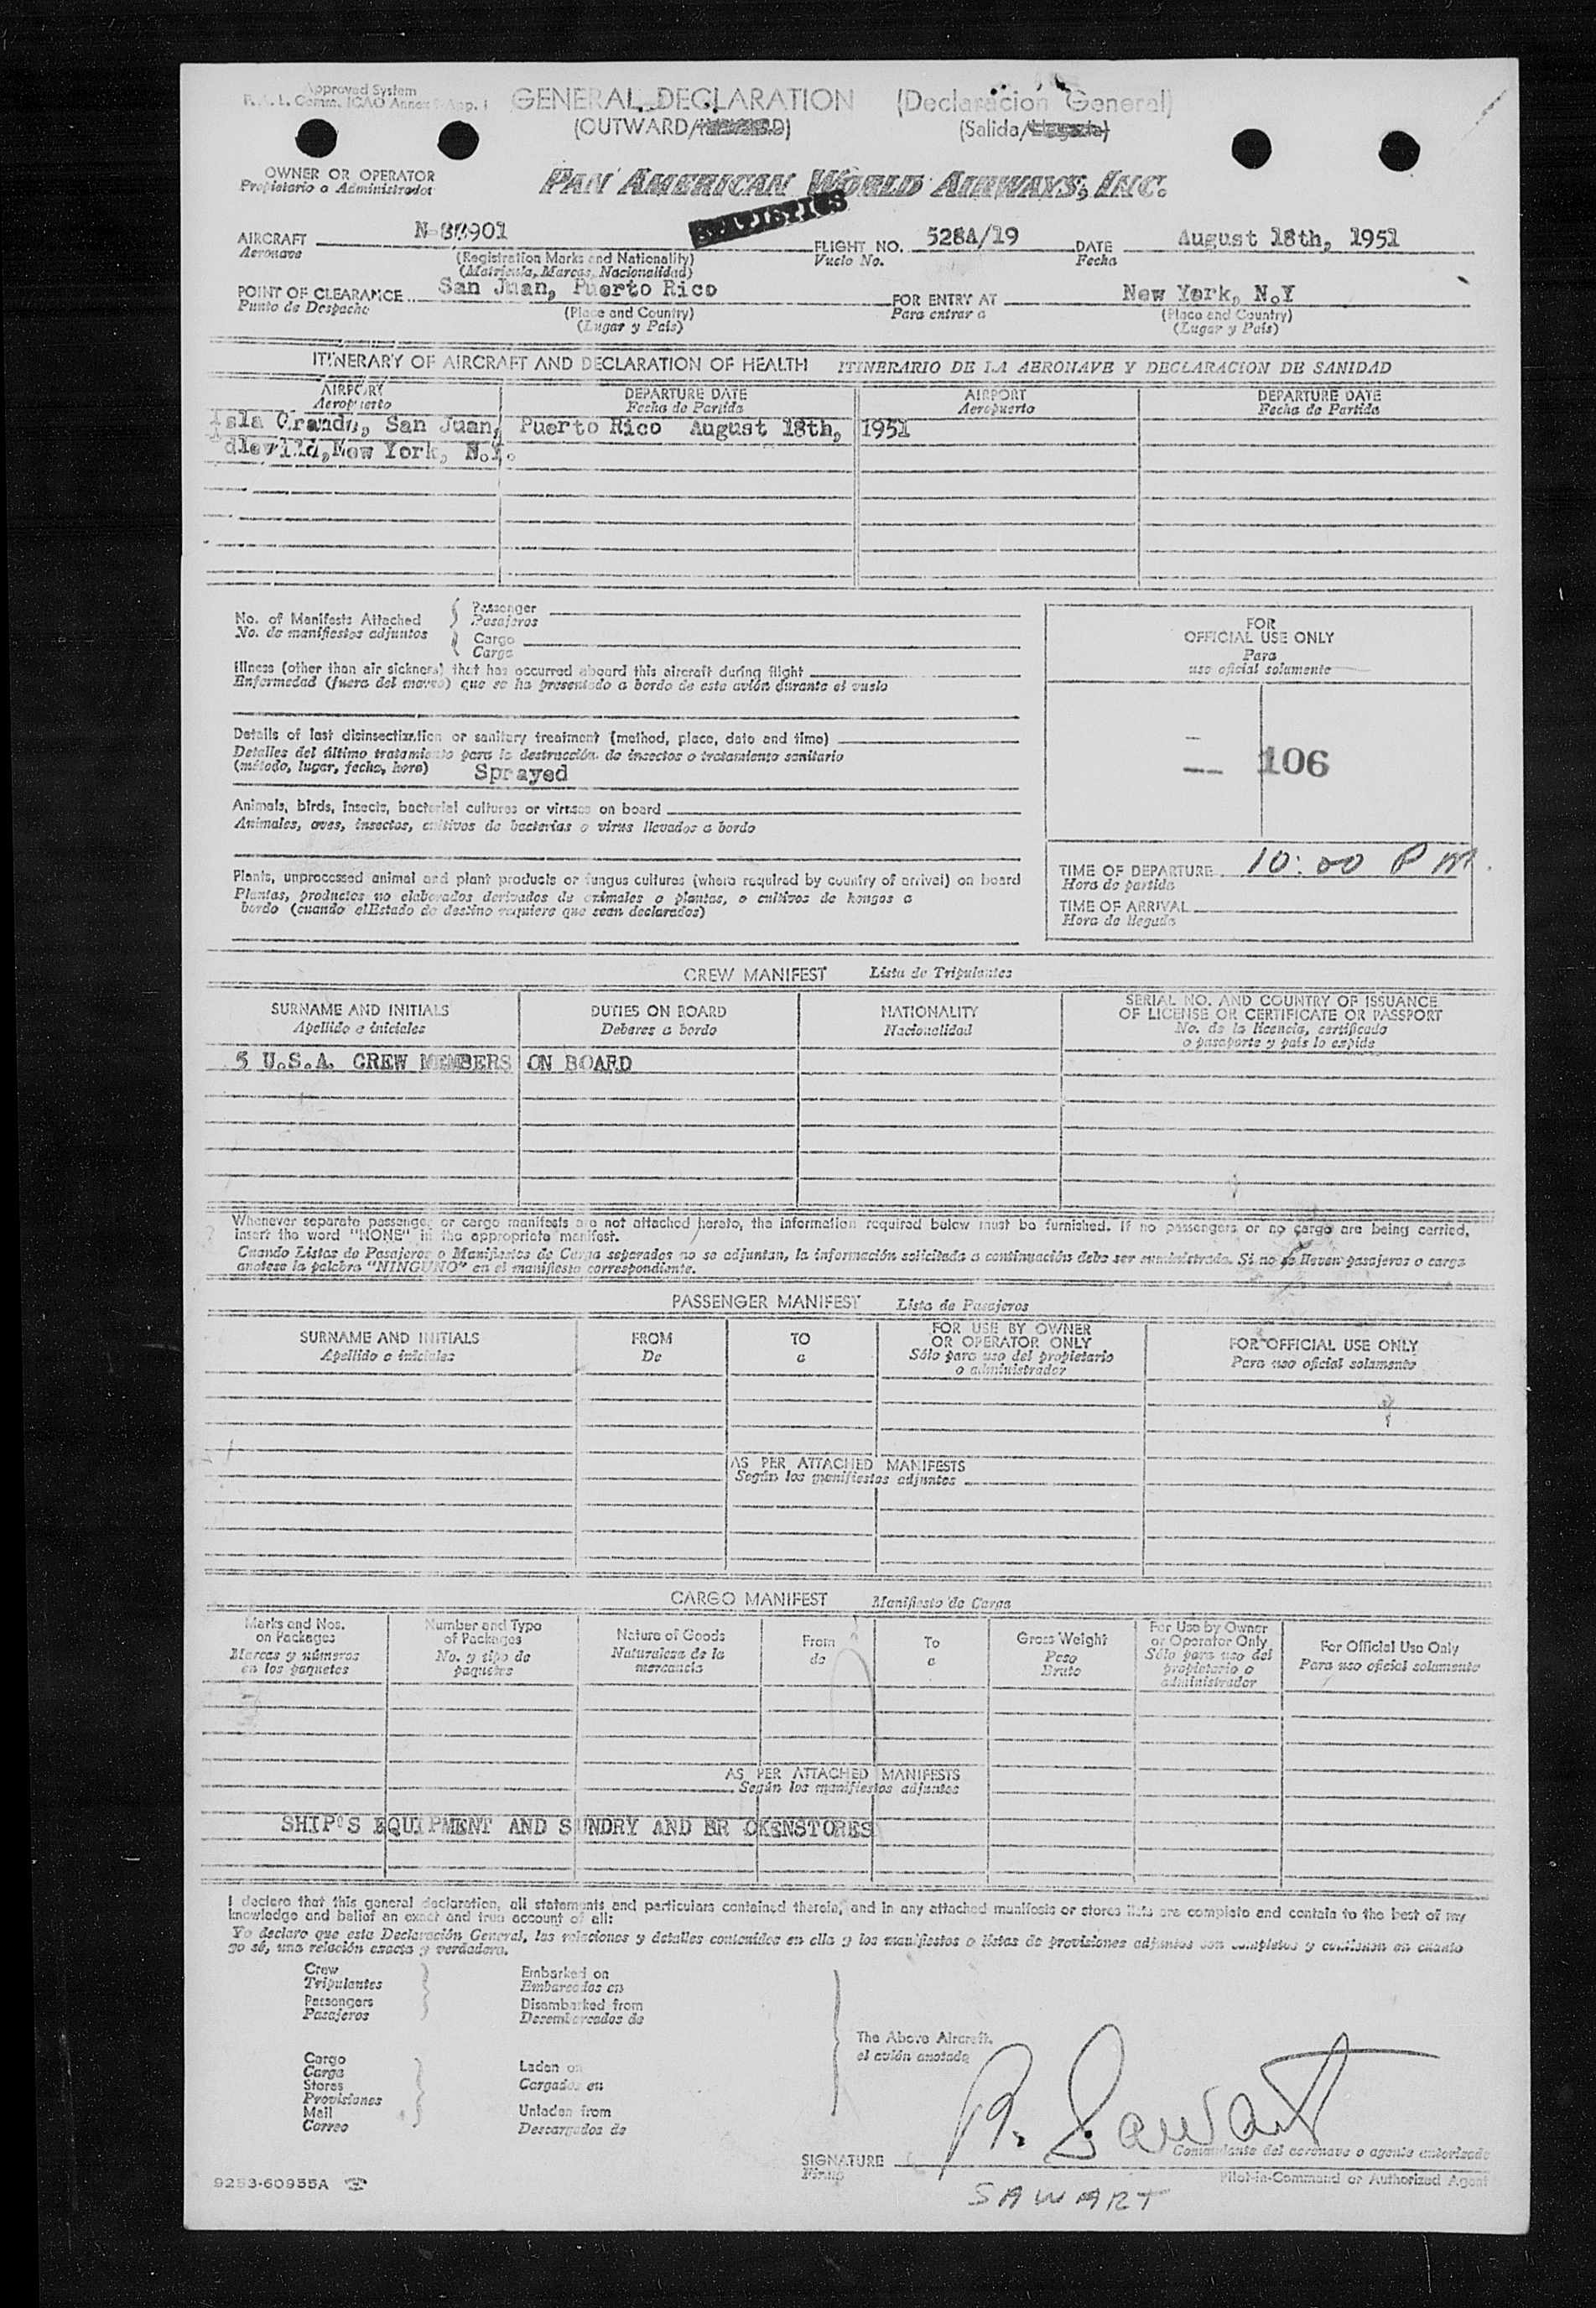 Approved System
Comm. ICAO Annex App. 1
GENERAL DECLARATION (Declaración General)
(OUTWARD/ (Salida/
OWNER OR OPERATOR
Propietario o Administrador
PAN AMERICAN WORLD AIRWAYS, INC.
STATISTICS
AIRCRAFT FLIGHT NO. 528A/19 DATE August 18th, 1951
Aeronave Vuelo No. Fecha
(Registration Marks and Nationality)
(Matricula, Marcas, Nacionalidad)
POINT OF CLEARANCE San Juan, Puerto Rico FOR ENTRY AT New York, N.Y
Punto de Despacho (Place and Country) Para entrar a (Place and Country)
(Lugar y País) (Lugar y País)
ITINERARY OF AIRCRAFT AND DECLARATION OF HEALTH ITINERARIO DE LA AERONAVE Y DECLARACION DE SANIDAD
AIRPORT DEPARTURE DATE AIRPORT DEPARTURE DATE
Aeropuerto Fecha de Partida Aeropuerto Fecha de Partida
Isla Grande, San Juan, Puerto Rico August 18th, 1951
Idlewild, New York, N.Y.
No. of Manifests Attached Passenger
No. de manifiestos adjuntos Pasajeros
Cargo
Carga
FOR
OFFICIAL USE ONLY
Para
uso oficial solamente
Illness (other than air sickness) that has occurred aboard this aircraft during flight
Enfermedad (fuera del mareo) que se ha presentado a bordo de este avión durante el vuelo
Details of last disinsectization or sanitary treatment (method, place, date and time)
Detalles del último tratamiento para la destrucción de insectos o tratamiento sanitario
(método, lugar, fecha, hora) Sprayed
106
Animals, birds, insects, bacterial cultures or viruses on board
Animales, aves, insectos, cultivos de bacterias o virus llevados a bordo
Plants, unprocessed animal and plant products or fungus cultures (where required by country of arrival) on board
Plantas, productos no elaborados derivados de animales o plantas, o cultivos de hongos a
bordo (cuando elEstado de destino requiere que sean declarados)
TIME OF DEPARTURE 10:00 PM.
Hora de partida
TIME OF ARRIVAL
Hora de llegada
CREW MANIFEST Lista de Tripulantes
SURNAME AND INITIALS DUTIES ON BOARD NATIONALITY SERIAL NO. AND COUNTRY OF ISSUANCE
OF LICENSE OR CERTIFICATE OR PASSPORT
Apellido e iniciales Deberes a bordo Nacionalidad No. de la licencia, certificado
o pasaporte y país lo expide
5 U.S.A. CREW MEMBERS ON BOARD
Whenever separate passenger or cargo manifests are not attached hereto, the information required below must be furnished. If no passengers or no cargo are being carried,
insert the word "NONE" in the appropriate manifest.
Cuando Listas de Pasajeros o Manifiestos de Carga separados no se adjuntan, la información solicitada a continuación debe ser suministrada. Si no se llevan pasajeros o carga
anotese la palabra "NINGUNO" en el manifiesto correspondiente.
PASSENGER MANIFEST Lista de Pasajeros
SURNAME AND INITIALS FROM TO FOR USE BY OWNER
OR OPERATOR ONLY FOR OFFICIAL USE ONLY
Apellido e iniciales De a Sólo para uso del propietario
o administrador Para uso oficial solamente
AS PER ATTACHED MANIFESTS
Según los manifiestos adjuntos
CARGO MANIFEST Manifiesto de Carga
Marks and Nos.
on Packages
Marcas y números
en los paquetes
Number and Type
of Packages
No. y tipo de
paquetes
Nature of Goods
Naturaleza de la
mercancia
From
de
To
a
Gross Weight
Peso
Bruto
For Use by Owner
or Operator Only
Sólo para uso del
propietario o
administrador
For Official Use Only
Para uso oficial solamente
AS PER ATTACHED MANIFESTS
Según los manifiestos adjuntos
SHIP'S EQUIPMENT AND SUNDRY AND BR OKENSTORES
I declare that this general declaration, all statements and particulars contained therein, and in any attached manifests or stores lists are complete and contain to the best of my
knowledge and belief an exact and true account of all:
Yo declaro que esta Declaración General, las relaciones y detalles contenidos en ella y los manifiestos o listas de provisiones adjuntos son completos y contienen en cuanto
yo sé, una relación exacta y verdadera.
Crew
Tripulantes
Passengers
Pasajeros
Embarked on
Embarcados en
Disembarked from
Desembarcados de
Cargo
Carga
Stores
Provisiones
Mail
Correo
Laden on
Cargados en
Unladen from
Descargados de
The Above Aircraft.
el avión anotado
R. Sawart
SIGNATURE
Firma
Comandante del aeronave o agente autorizado
Pilot-in-Command or Authorized Agent
SAWART
9253-60955A